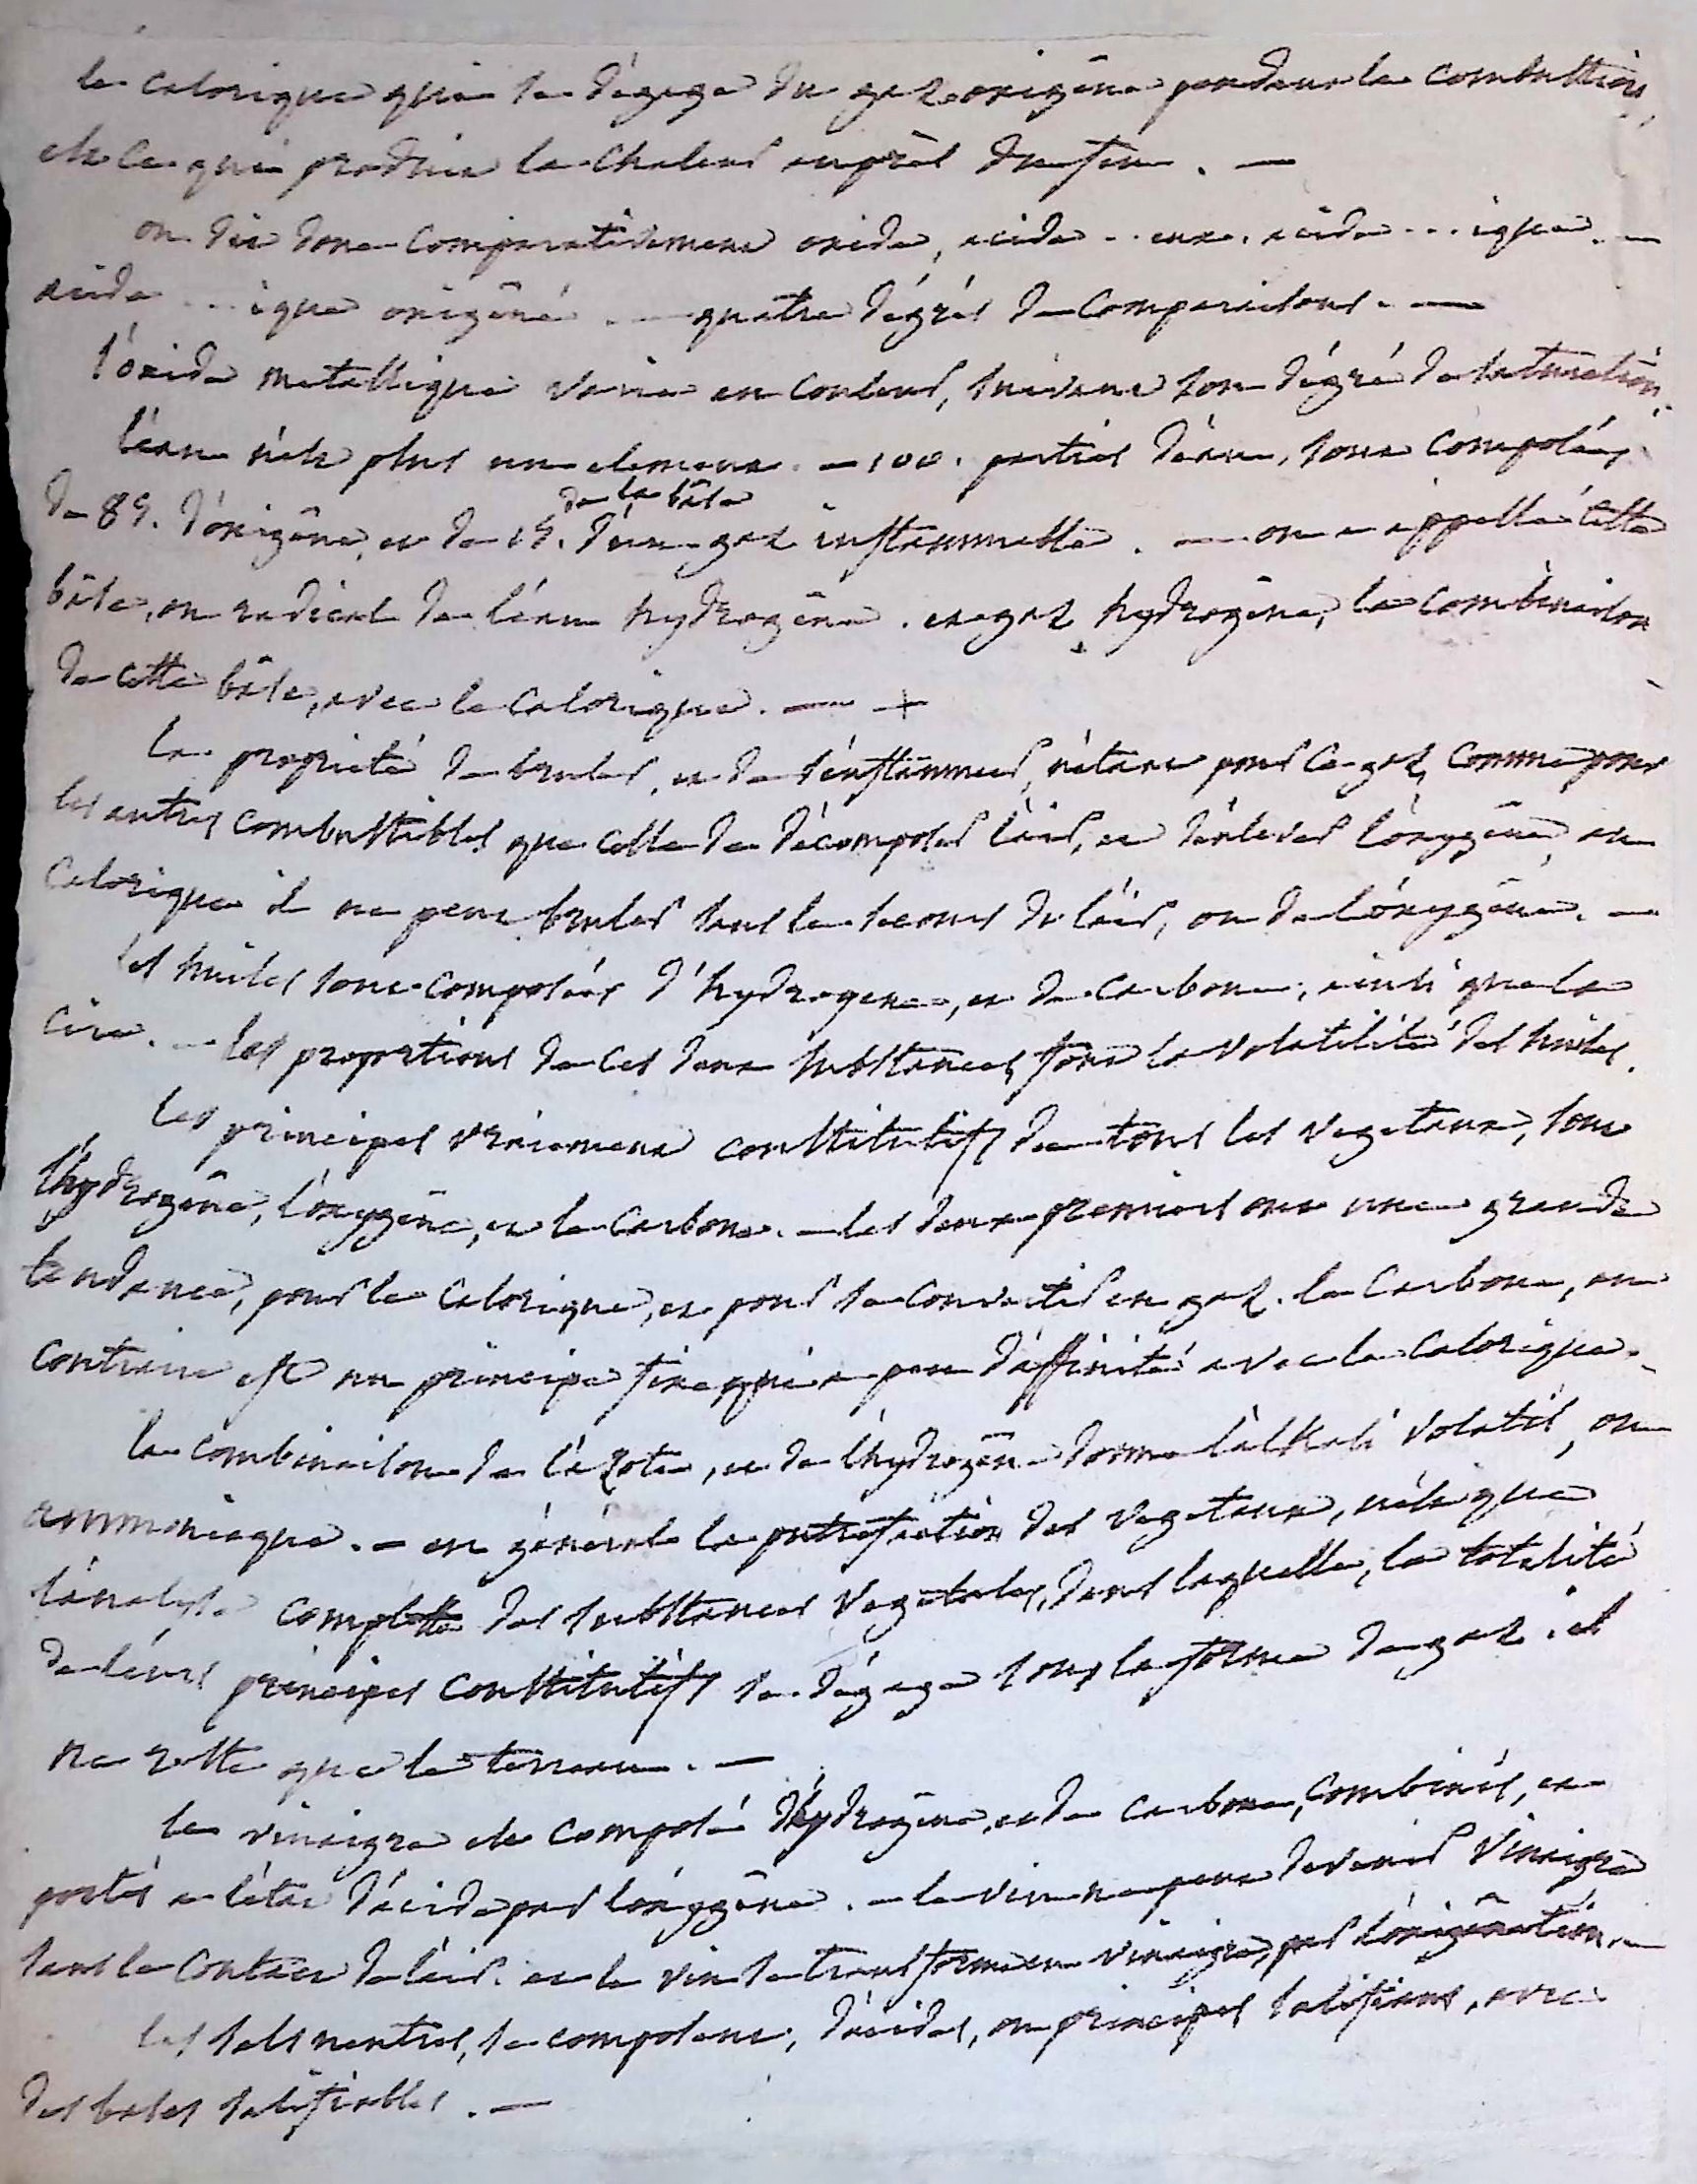 le calorique qui se dégage du gaz oxigêne pendant la combustion,
est ce qui produit la chaleur auprès du feu. —
on dit donc comparativement oxide, acide .. eux, acide ... ique. —
acide ... ique oxigêné — quatre dégrés de comparaisons. —
l'oxide metallique varie en couleur, suivant son dégré de saturation.
l'eau n'est plus un element. — 100. parties d'eau, sont composées
de 85. d'oxigêne, et de 15. de la bâse d'un gaz inflammable. — on a appellé cette
bâse, ou radical de l'eau hydrogêne. et gaz hydrogêne, la combinaison
de cette bâse, avec le calorique. — +
la proprieté de bruler, et de s'enflâmmer, n'étant pour ce gaz, comme pour
les autres combustibles que celle de décomposer l'air, et d'enlever l'oxygêne, au
calorique il ne peut bruler sans le secours de l'air, ou de l'oxygêne. —
les huiles sont composées d'hydrogene, et de carbone, ainsi que la
cire. — les proportions de ces deux substances, font la volatilité des huiles.
les principes vraiement constitutifs de tous les vegetaux, sont
l'hydrogêne, l'oxygêne, et le carbone. — les deux premiers ont une grande
tendance, pour le calorique, et pour se convertir en gaz. le carbone, au
contraire est un principe fixe qui a peu d'affinité avec le calorique.
la combinaison de l'azote, et de l'hydrogêne donne l'alkali volatil, ou
ammoniaque. — en général la putrefaction des vegetaux, n'est que
l'analyse complette des substances vegetales, dans laquelle, la totalité
de leurs principes constitutifs se dégage sous la forme de gaz. il
ne reste que le terreau. —
le vinaigre est composé d'hydrogêne, et de carbone, combinés, et
portés a l'état d'acide par l'oxygêne. — le vin ne peut devenir vinaigre
sans le contact de l'air. et le vin se transforme en vinaigre, par l'oxigênation. —
les sels neutres, se composent, d'acides, ou principes salifians, avec
des bases salifiables. —